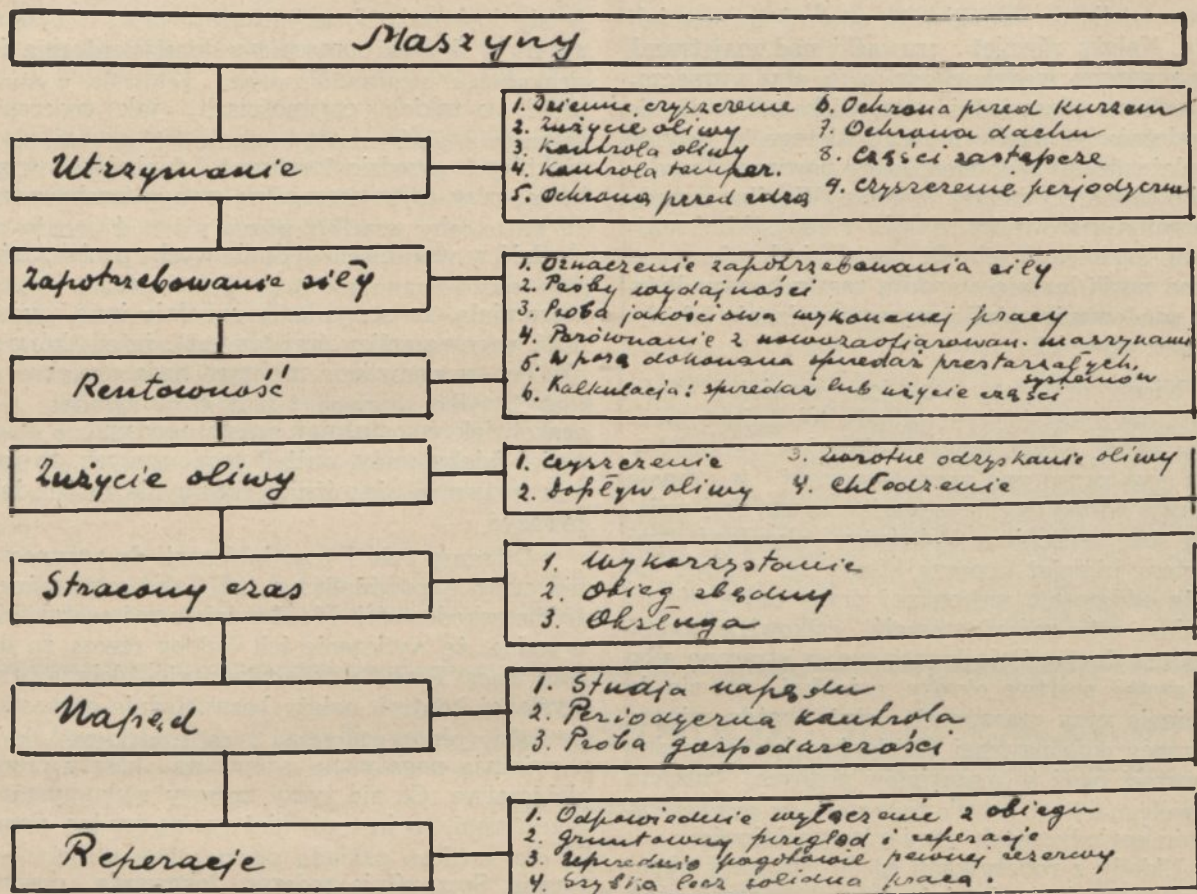 Maszyny
Utrzymanie
1. Dzienne czyszczenie
2. Zużycie oliwy
3. Kontrola oliwy
4. Kontrola temper.
5. Ochrona przed rdzą
6. Ochrona przed kurzem
7. Ochrona dachu
8. Części zastępcze
9. Czyszczenie perjodyczne
Zapotrzebowanie siły
1. Oznaczenie zapotrzebowania siły
2. Próby wydajności
3. Próba jakościowa wykonanej pracy
4. Porównanie z nowozaofiarowan. maszynami
5. W porę dokonana sprzedaż przestarzałych
systemów
6. Kalkulacja: sprzedaż lub użycie części
Rentowność
Zużycie oliwy
1. Czyszczenie
2. Dopływ oliwy
3. Zwrotne odzyskanie oliwy
4. Chłodzenie
Stracony czas
1. Wykorzystanie
2. Obieg zbędny
3. Obsługa
Napęd
1. Studja napędu
2. Periodyczna kontrola
3. Próba gospodarczości
Reperacje
1. Odpowiednie wyłączenie z obiegu
2. Gruntowny przegląd i reperacje
3. Uprzednio pogotowie pewnej rezerwy
4. Szybka lecz solidna praca.